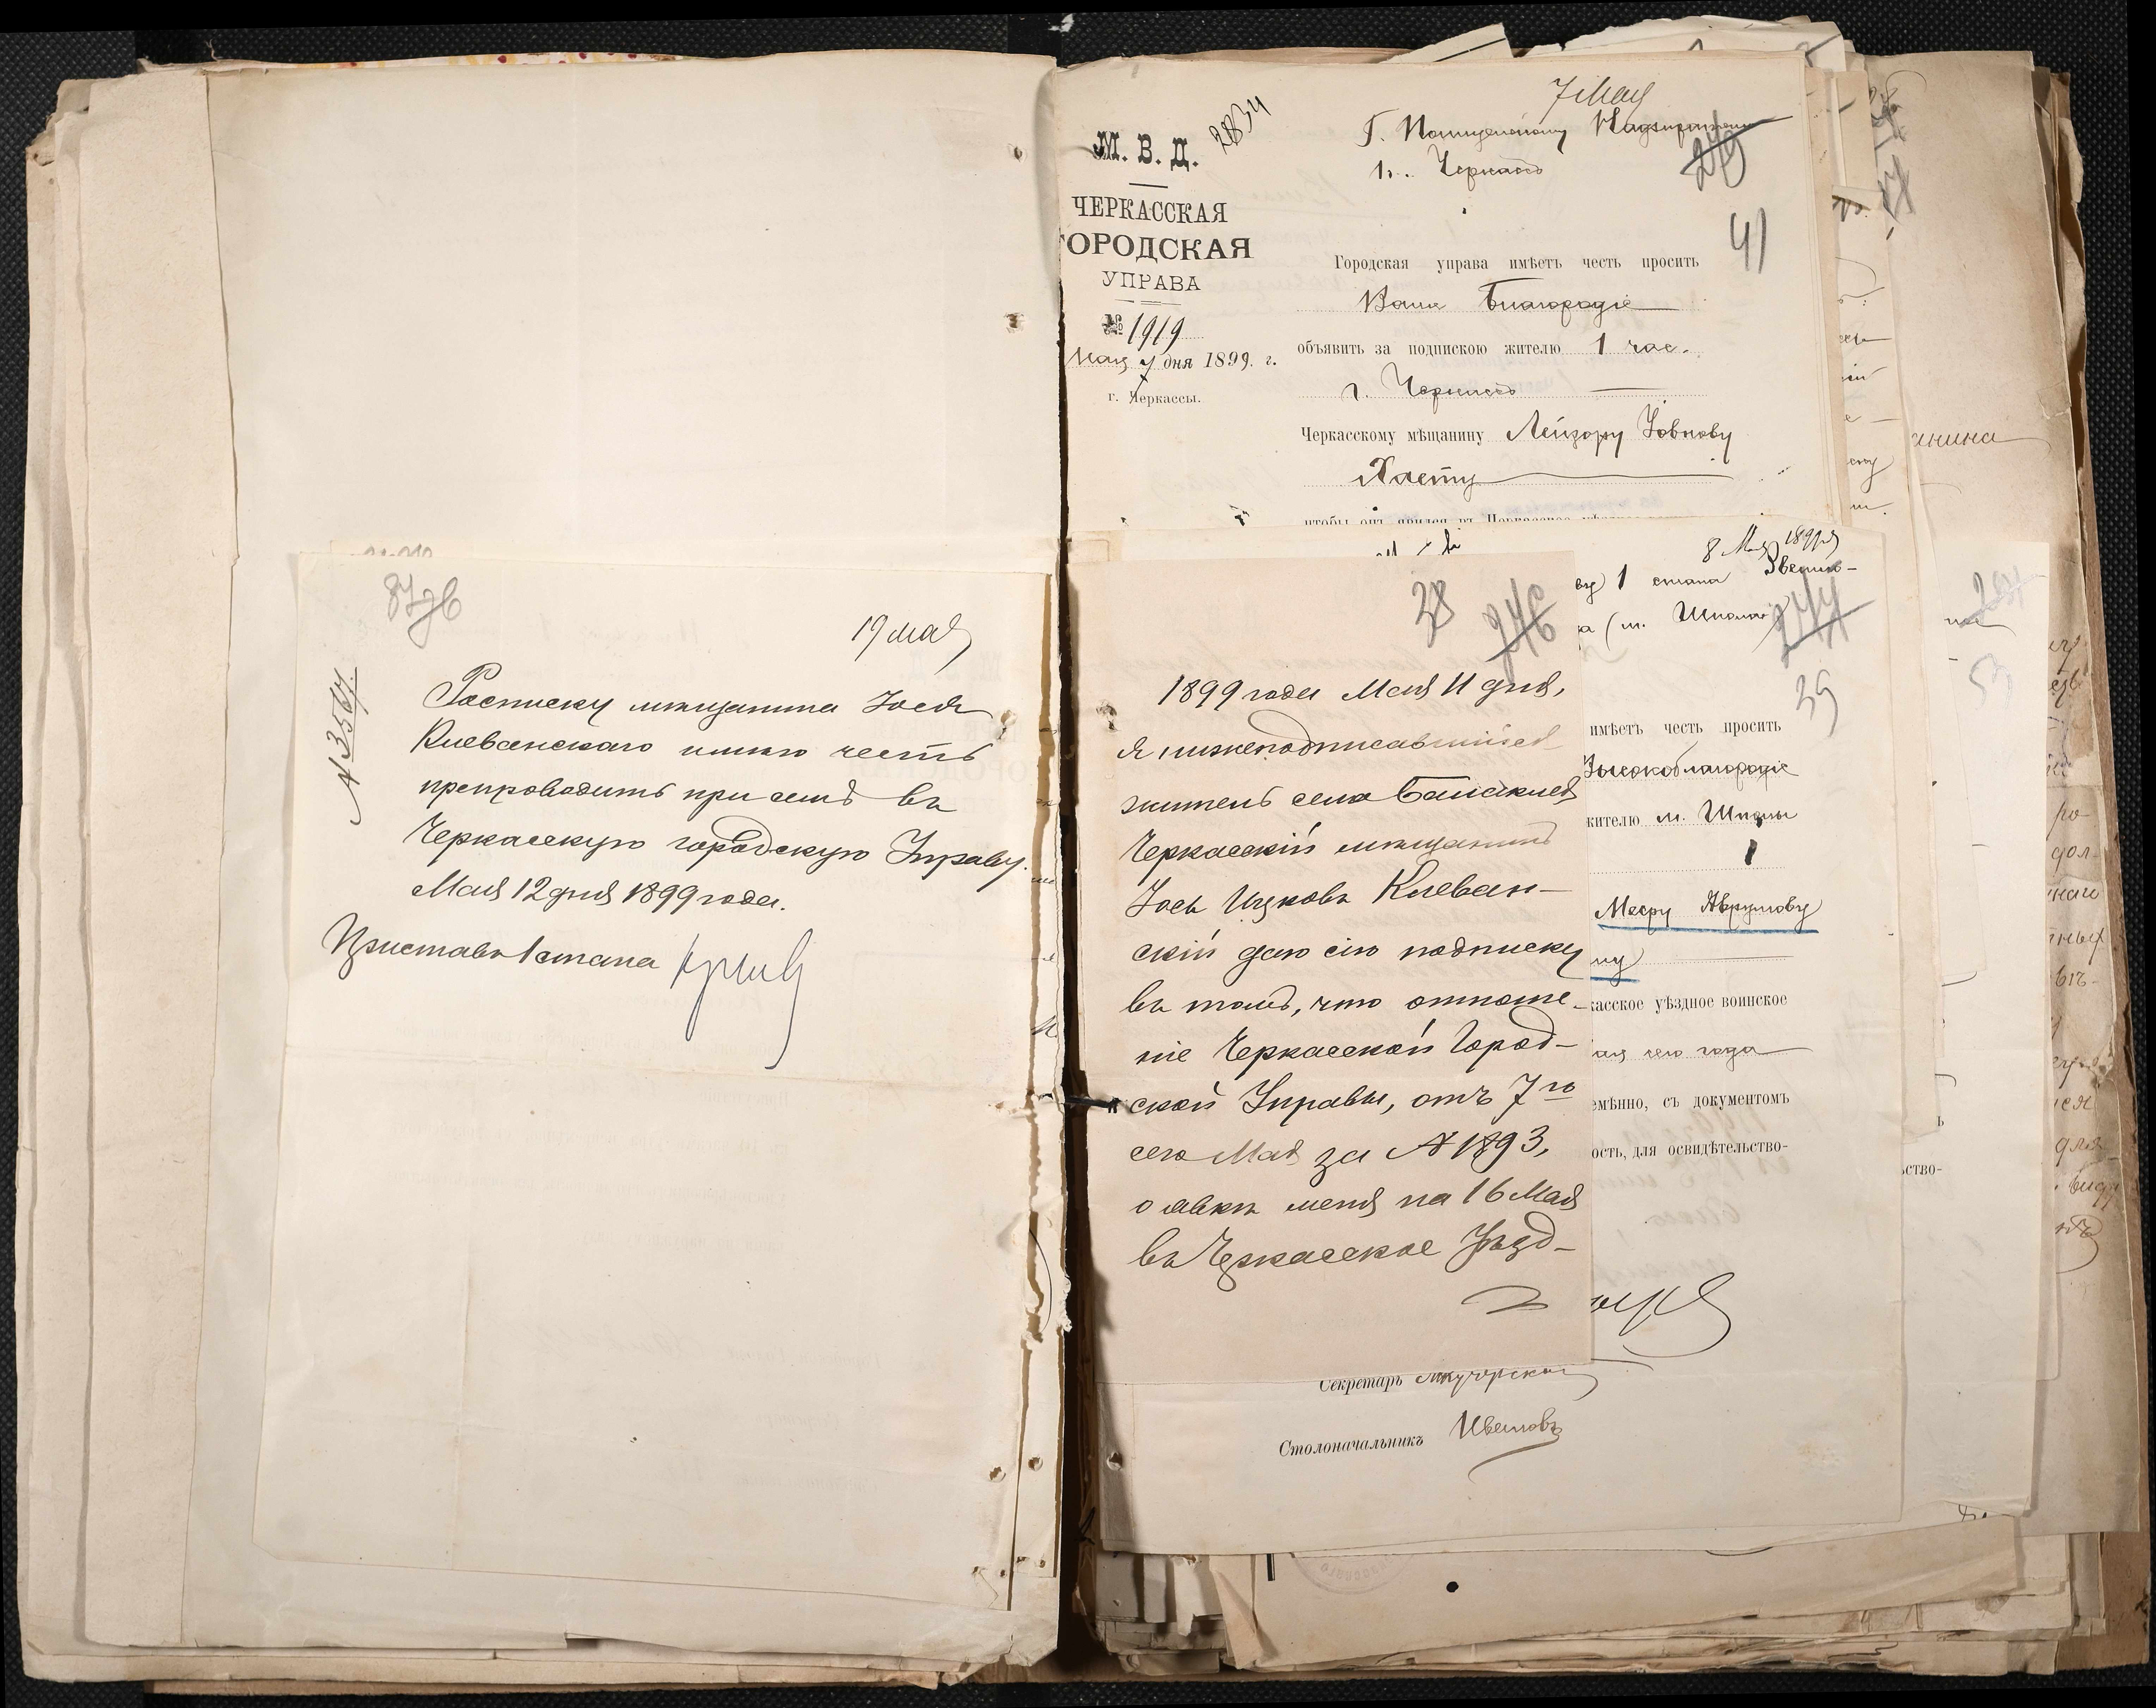 37
19 мая
№ 3567.
Росписку мѣщанина Йося
Клеванскаго имѣю честь
препроводить при семъ въ
Черкасскую городскую Управу.
Мая 12 дня 1899 года.
Приставъ 1 стана
7 Мая
М. В. Д.
2834
ЧЕРКАССКАЯ
ГОРОДСКАЯ
УПРАВА
№ 1919
Мая 7 дня 1899. г.
г. Черкассы.
Г. Полицейскому Надзирателю
г. Черкассъ
41
Городская управа имѣетъ честь просить
Ваше Благородіе
объявить за подпискою жителю 1 час.
г. Черкассъ
Черкасскому мѣщанину Лейзору Іовнову
Хаету
38
246
1899 года Мая 11 дня,
я нижеподписавшійся
житель села
Черкасскій мѣщанинъ
Йось Ицковъ Клеван-
скій даю сію подписку
въ томъ, что отноше-
ніе Черкасской Город-
ской Управы, отъ 7го
сего Мая за № 1893,
о явкѣ меня на 16 Мая
въ Черкасское Уѣзд-
8 Мая 1899
1 стана Звениго-
(м. Шпола)
244
39
имѣетъ честь просить
Высокоблагородіе
жителю м. Шполы
Мееру Аврумову
касское уѣздное воинское
сего года
емѣнно, съ документомъ
ость, для освидѣтельство-
Секретарь
Столоначальникъ
анина
ство-